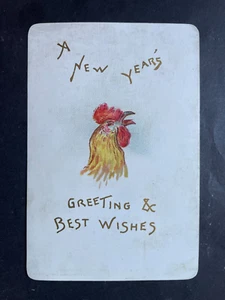 A
NEW YEAR'S
GREETING &
BEST WISHES